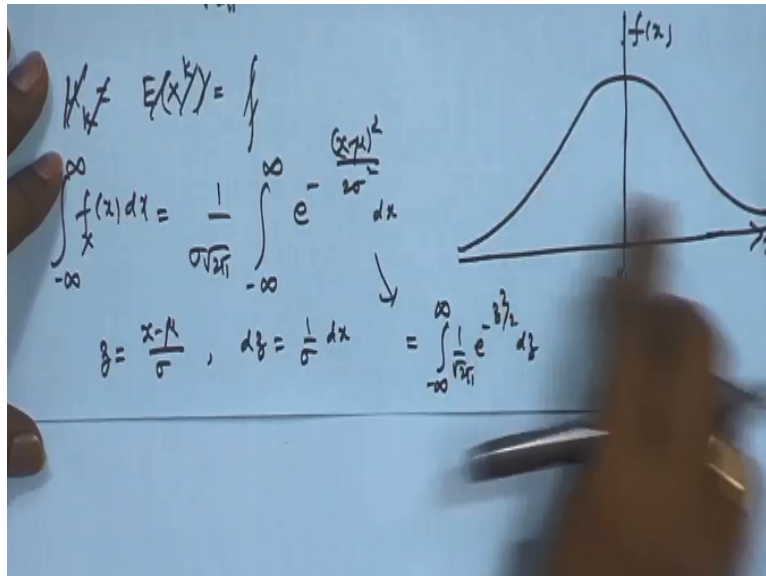 f(x)
μ'ₖ = E(xᵏ) = ∫
∫_{-∞}^{∞} fₓ(x) dx = 1/(σ√2π) ∫_{-∞}^{∞} e^{-(x-μ)²/2σ²} dx
z = (x-μ)/σ , dz = 1/σ dx = ∫_{-∞}^{∞} 1/√2π e^{-z²/2} dz